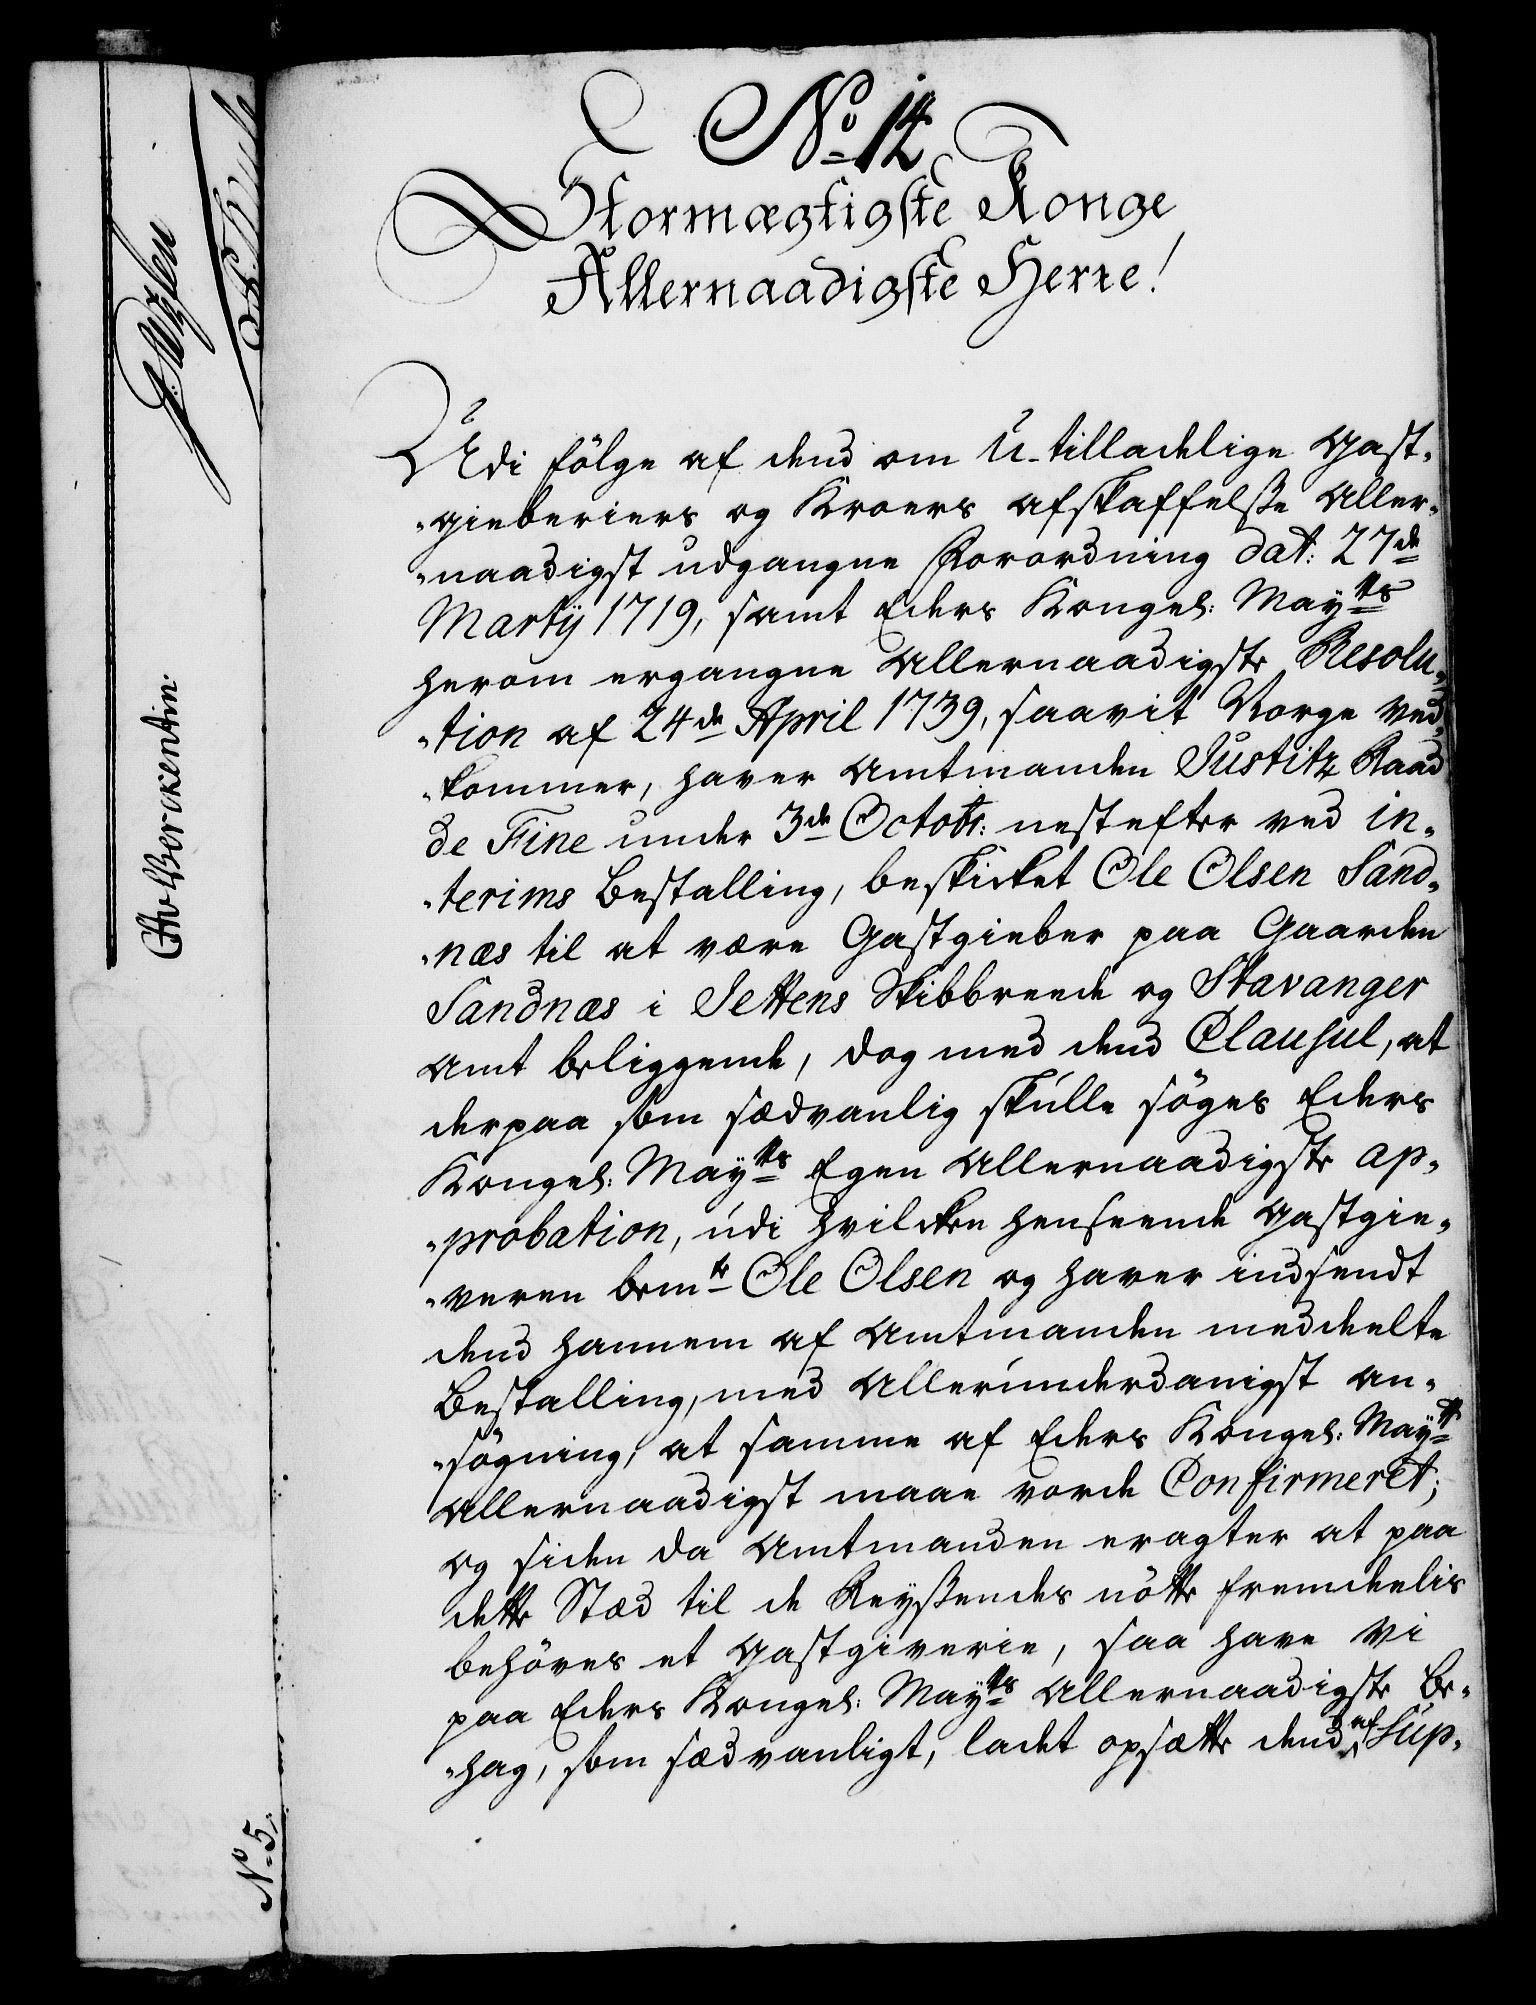 No 14
Stormægtigste Konge
Allernaadigste Herre!
Udi fölge af dend om U-tilladelige Gast-
-gieberiers og Kroers afskaffelsße Aller-
-naadigst udgangne Forordning dat: 27de
Martÿ 1719, samt Eders Kongel: Mayts
herom ergangne Allernaadigste Resolu-
-tion af 24de April 1739, saavit Norge ved-
-kommer, haver Amtmanden Justitz Raad
de Fine under 3de Octobr: nestefter ved in-
-terims Bestalling, beskicket Ole Olsen Sand-
-næs til at være Gastgieber paa Gaarden
Sandnæs i Jettens Skibbreede og Stavanger
Amt beliggende, dog med dend Clausul, at
derpaa som sædvanlig skulle söges Eders
Kongel: Mayts Egen Allernaadigste ap-
-probation, udi hvilcken henseende Gastgie-
-veren bemte Ole Olsen og haver indsendt
dend hannem af Amtmanden meddeelte
Bestalling, med Allerunderdanigst an-
-sögning, at samme af Eders Kongel: Maytt
Allernaadigst maae vorde Confirmeret;
og siden da Amtmanden eragter at paa
dette Stæd til de Reysßendes nötte fremdeelis
behöves et Gastgiverie, saa have vi
paa Eders Kongel: Mayts Allernaadigste Be-
-hag, som sædvanligt, ladet opsætte dend af Sup-
CAvBerckentin.
No 5.